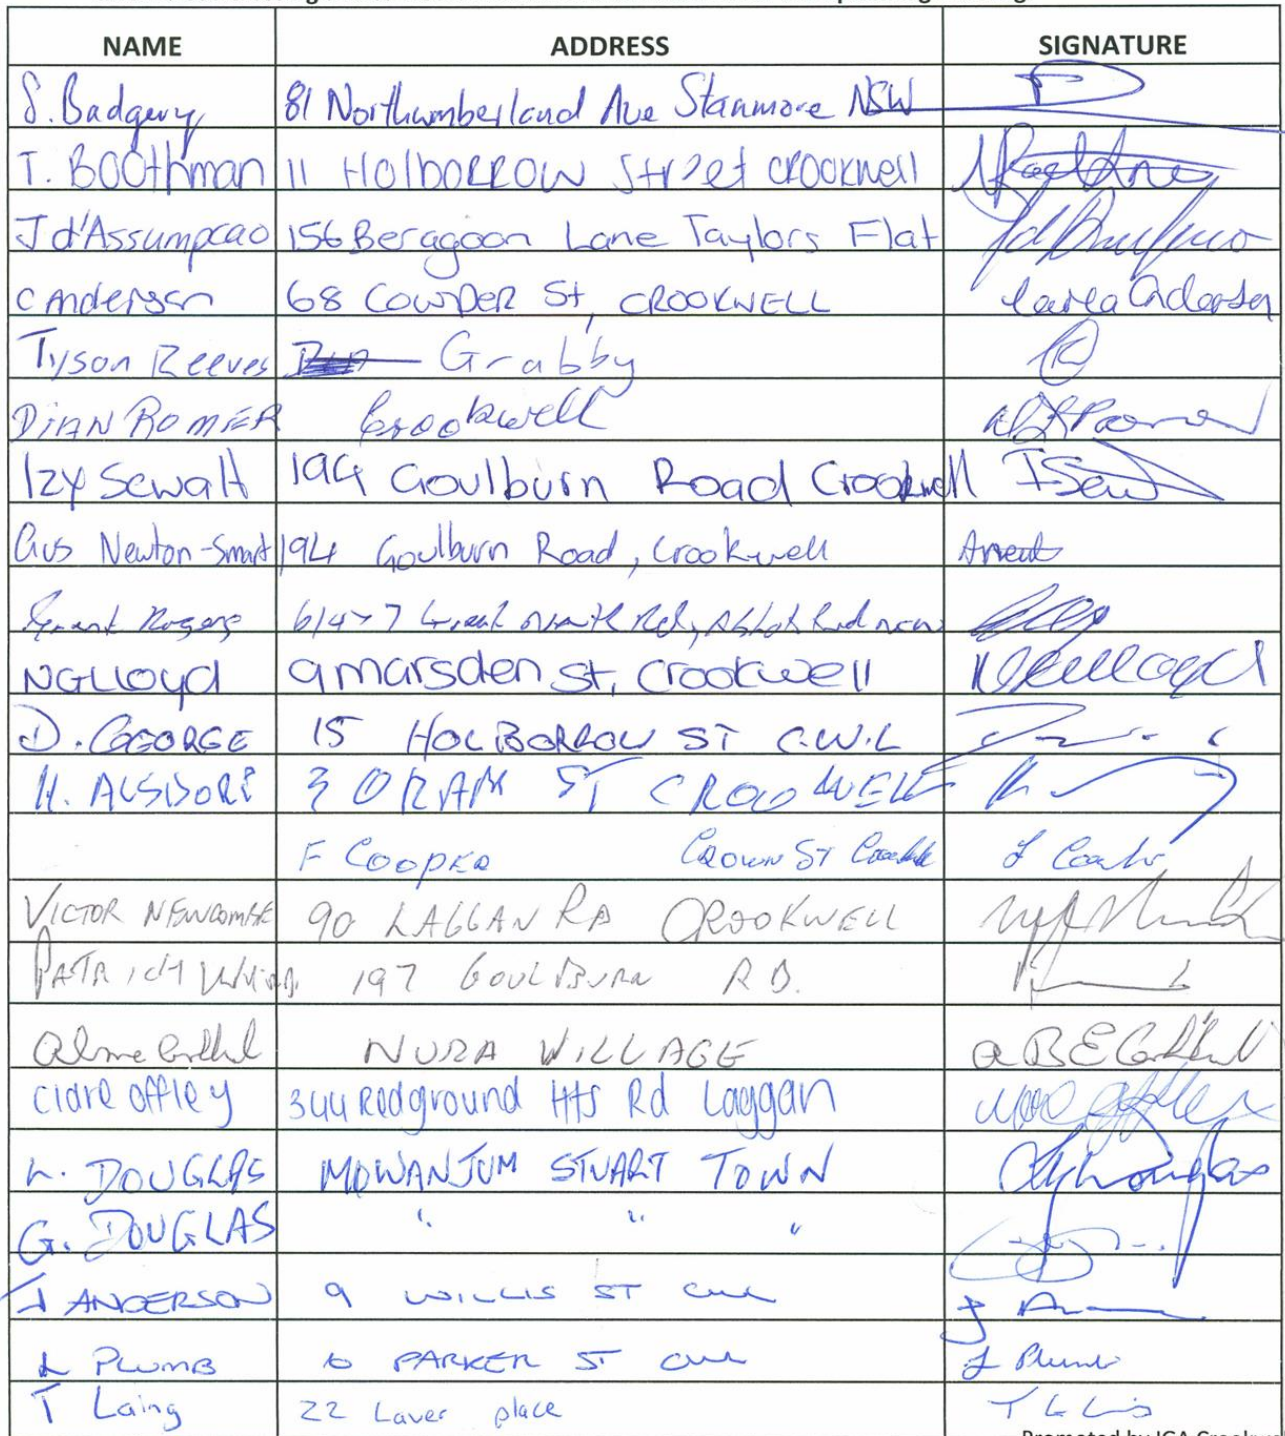 NAME ADDRESS SIGNATURE
S. Badgery 81 Northumberland Ave Stanmore NSW
T. BOOthman 11 HOlbORROW Street CROOKWell
J d'Assumpcao 156 Beragoon Lane Taylors Flat
C Anderson 68 COWPER St, CROOKWELL Carla Anderson
Tyson Reeves Grabby
DIAN ROMER Crookwell
Izy Sewalt 194 Goulburn Road Crookwell I Sew
Gus Newton-Smart 194 Goulburn Road, Crookwell
Grant Rogers Great North Rd,
NGLLoyd 9 marsden st, Crookwell
D. GEORGE 15 HOLBORROW ST C.W.L
H. 3 ORAM ST CROOKWELL
F COOPER CROWN ST
VICTOR NEWCOMBE 90 LAGGAN RD CROOKWELL
PATRICK 197 GOULBURN RD.
NURA VILLAGE
Clare Offley 344 Redground Hts Rd Laggan
L. DOUGLAS MOWANJUM STUART TOWN
G. DOUGLAS " " "
J ANDERSON 9 WILLIS ST CWL
L PLUMB 10 PARKER ST CWL L Plumb
T Laing 22 Laver place
Promoted by IGA